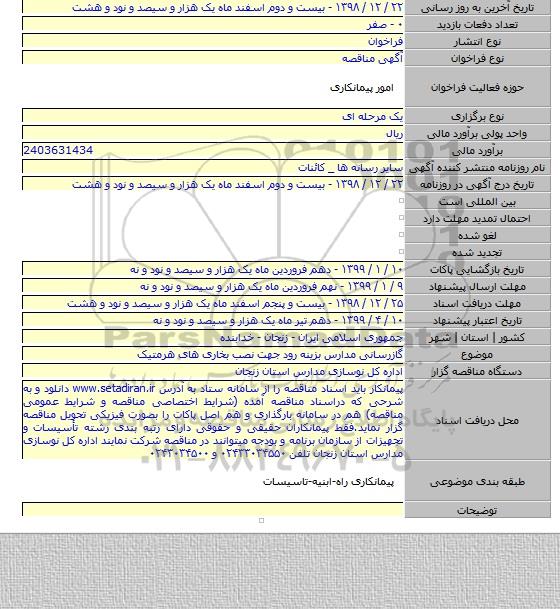 تاریخ آخرین به روز رسانی ۲۲ / ۱۲ / ۱۳۹۸ - بیست و دوم اسفند ماه یک هزار و سیصد و نود و هشت
تعداد دفعات بازدید ۰ - صفر
نوع انتشار فراخوان
نوع فراخوان آگهی مناقصه
حوزه فعالیت فراخوان امور پیمانکاری
نوع برگزاری یک مرحله ای
واحد پولی برآورد مالی ریال
برآورد مالی 2403631434
نام روزنامه منتشر کننده آگهی سایر رسانه ها _ کائنات
تاریخ درج آگهی در روزنامه ۲۲ / ۱۲ / ۱۳۹۸ - بیست و دوم اسفند ماه یک هزار و سیصد و نود و هشت
بین المللی است
احتمال تمدید مهلت دارد
لغو شده
تجدید شده
تاریخ بازگشایی پاکات ۱۰ / ۱ / ۱۳۹۹ - دهم فروردین ماه یک هزار و سیصد و نود و نه
مهلت ارسال پیشنهاد ۹ / ۱ / ۱۳۹۹ - نهم فروردین ماه یک هزار و سیصد و نود و نه
مهلت دریافت اسناد ۲۵ / ۱۲ / ۱۳۹۸ - بیست و پنجم اسفند ماه یک هزار و سیصد و نود و هشت
تاریخ اعتبار پیشنهاد ۱۰ / ۴ / ۱۳۹۹ - دهم تیر ماه یک هزار و سیصد و نود و نه
کشور | استان | شهر جمهوری اسلامی ایران - زنجان - خدابنده
موضوع گازرسانی مدارس بزینه رود جهت نصب بخاری های هرمتیک
دستگاه مناقصه گزار اداره کل نوسازی مدارس استان زنجان
محل دریافت اسناد
پیمانکار باید اسناد مناقصه را از سامانه ستاد به آدرس www.setadiran.ir دانلود و به
شرحی که دراسناد مناقصه آمده (شرایط اختصاصی مناقصه و شرایط عمومی
مناقصه) هم در سامانه بارگذاری و هم اصل پاکات را بصورت فیزیکی تحویل مناقصه
گزار نماید.فقط پیمانکاران حقیقی و حقوقی دارای رتبه بندی رشته تأسیسات و
تجهیزات از سازمان برنامه و بودجه میتوانند در مناقصه شرکت نمایند اداره کل نوسازی
مدارس استان زنجان تلفن ۰۲۴۳۳۰۳۴۵۵۰ و ۰۲۴۳۳۰۳۴۵۰۰
طبقه بندی موضوعی پیمانکاری راه-ابنیه-تاسیسات
توضیحات
ParsNamadData
۰۲۱-۸۸۳۴۹۶۷۰-۵